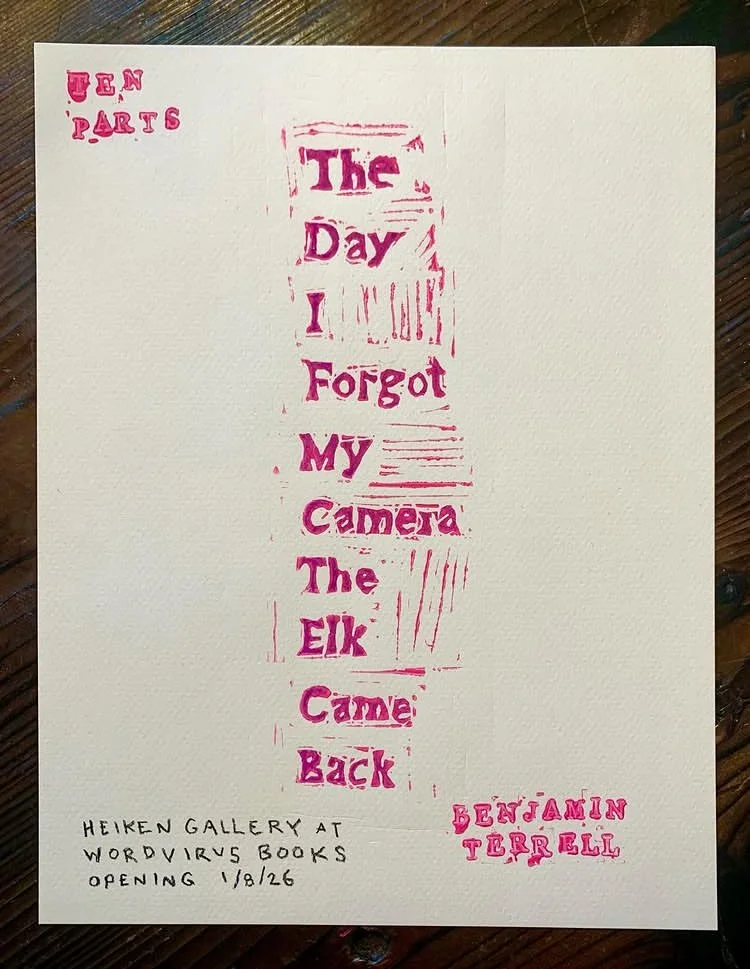 TEN
PARTS
The
Day
I
Forgot
My
Camera
The
Elk
Came
Back
BENJAMIN
TERRELL
HEIKEN GALLERY AT
WORDVIRUS BOOKS
OPENING 1/8/26